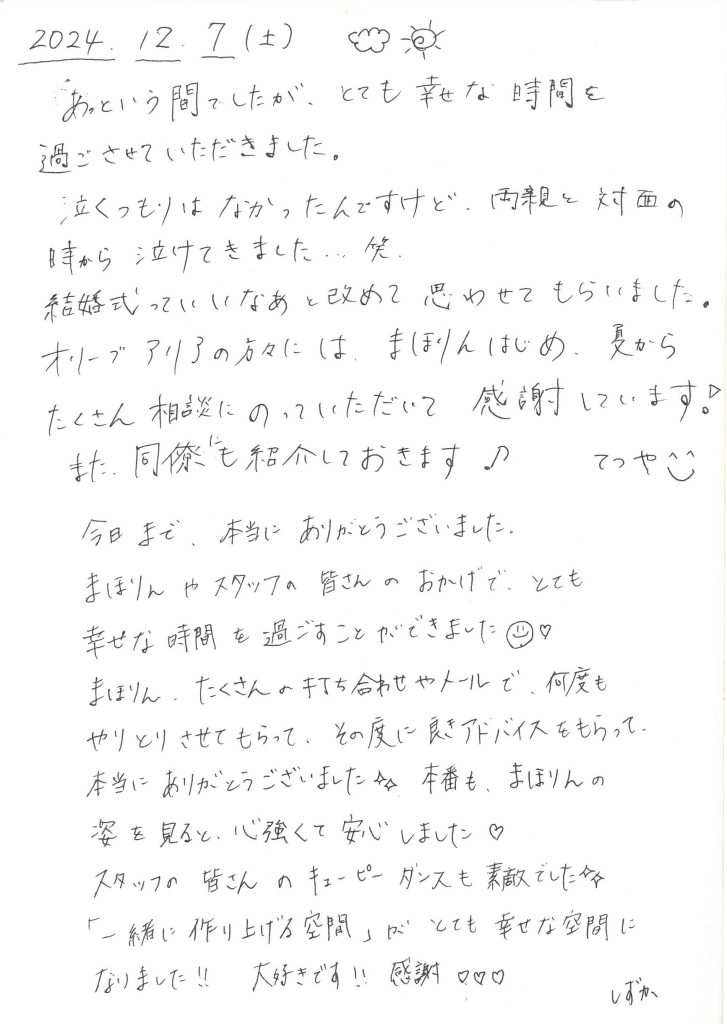 2024. 12. 7 (土)
あっという間でしたが、とても幸せな時間を
過ごさせていただきました。
泣くつもりはなかったんですけど、両親と対面の
時から泣けてきました…笑.
結婚式っていいなあと改めて思わせてもらいました。
オリーブアリアの方々には、まほりんはじめ、夏から
たくさん相談にのっていただいて感謝しています!
また、同僚にも紹介しておきます♪ てつや
今日まで、本当にありがとうございました.
まほりんやスタッフの皆さんのおかげで、とても
幸せな時間を過ごすことができました☺♡
まほりん、たくさんの打ち合わせやメールで、何度も
やりとりさせてもらって、その度に良きアドバイスをもらって、
本当にありがとうございました☆☆ 本番も、まほりんの
姿を見ると、心強くて安心しました♡
スタッフの皆さんのキューピーダンスも素敵でした☆☆
「一緒に作り上げる空間」がとても幸せな空間に
なりました!! 大好きです!! 感謝♡♡♡
しずか